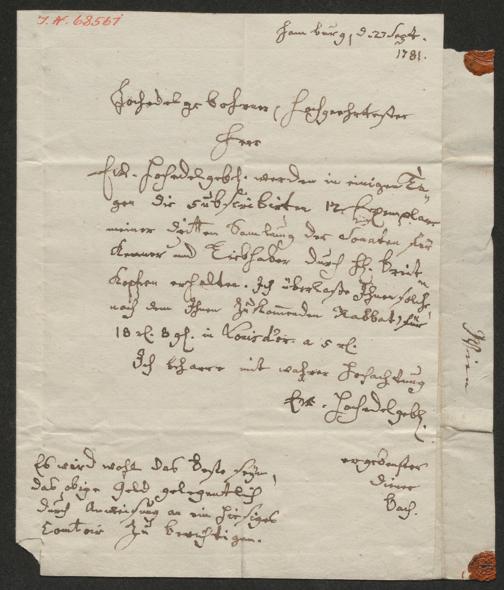 I. N. 68561
Hamburg, d. 27 Sept.
1781.
Hochedelgebohrner, Hochgeehrtester
Herr
Ew. Hochedelgeb. werden in einigen Ta-
gen die subscribirten 12 Exemplare
meiner dritten Samlung der Sonaten für
Kenner und Liebhaber durch H. Breit-
kopfen erhalten. Ich überlaße Ihnen solche
nach dem Ihnen zukommenden Rabbat, für
18 rl. 8 gl. in Louisd'or a 5 rl.
Ich beharre mit wahrer Hochachtung
Ew. Hochedelgeb.
ergebenster
Diener
Bach.
Es wird wohl das Beste seyn,
das obige Geld gelegentlich
durch Anweisung an ein hiesiges
Comtoir zu berichtigen.
Wien